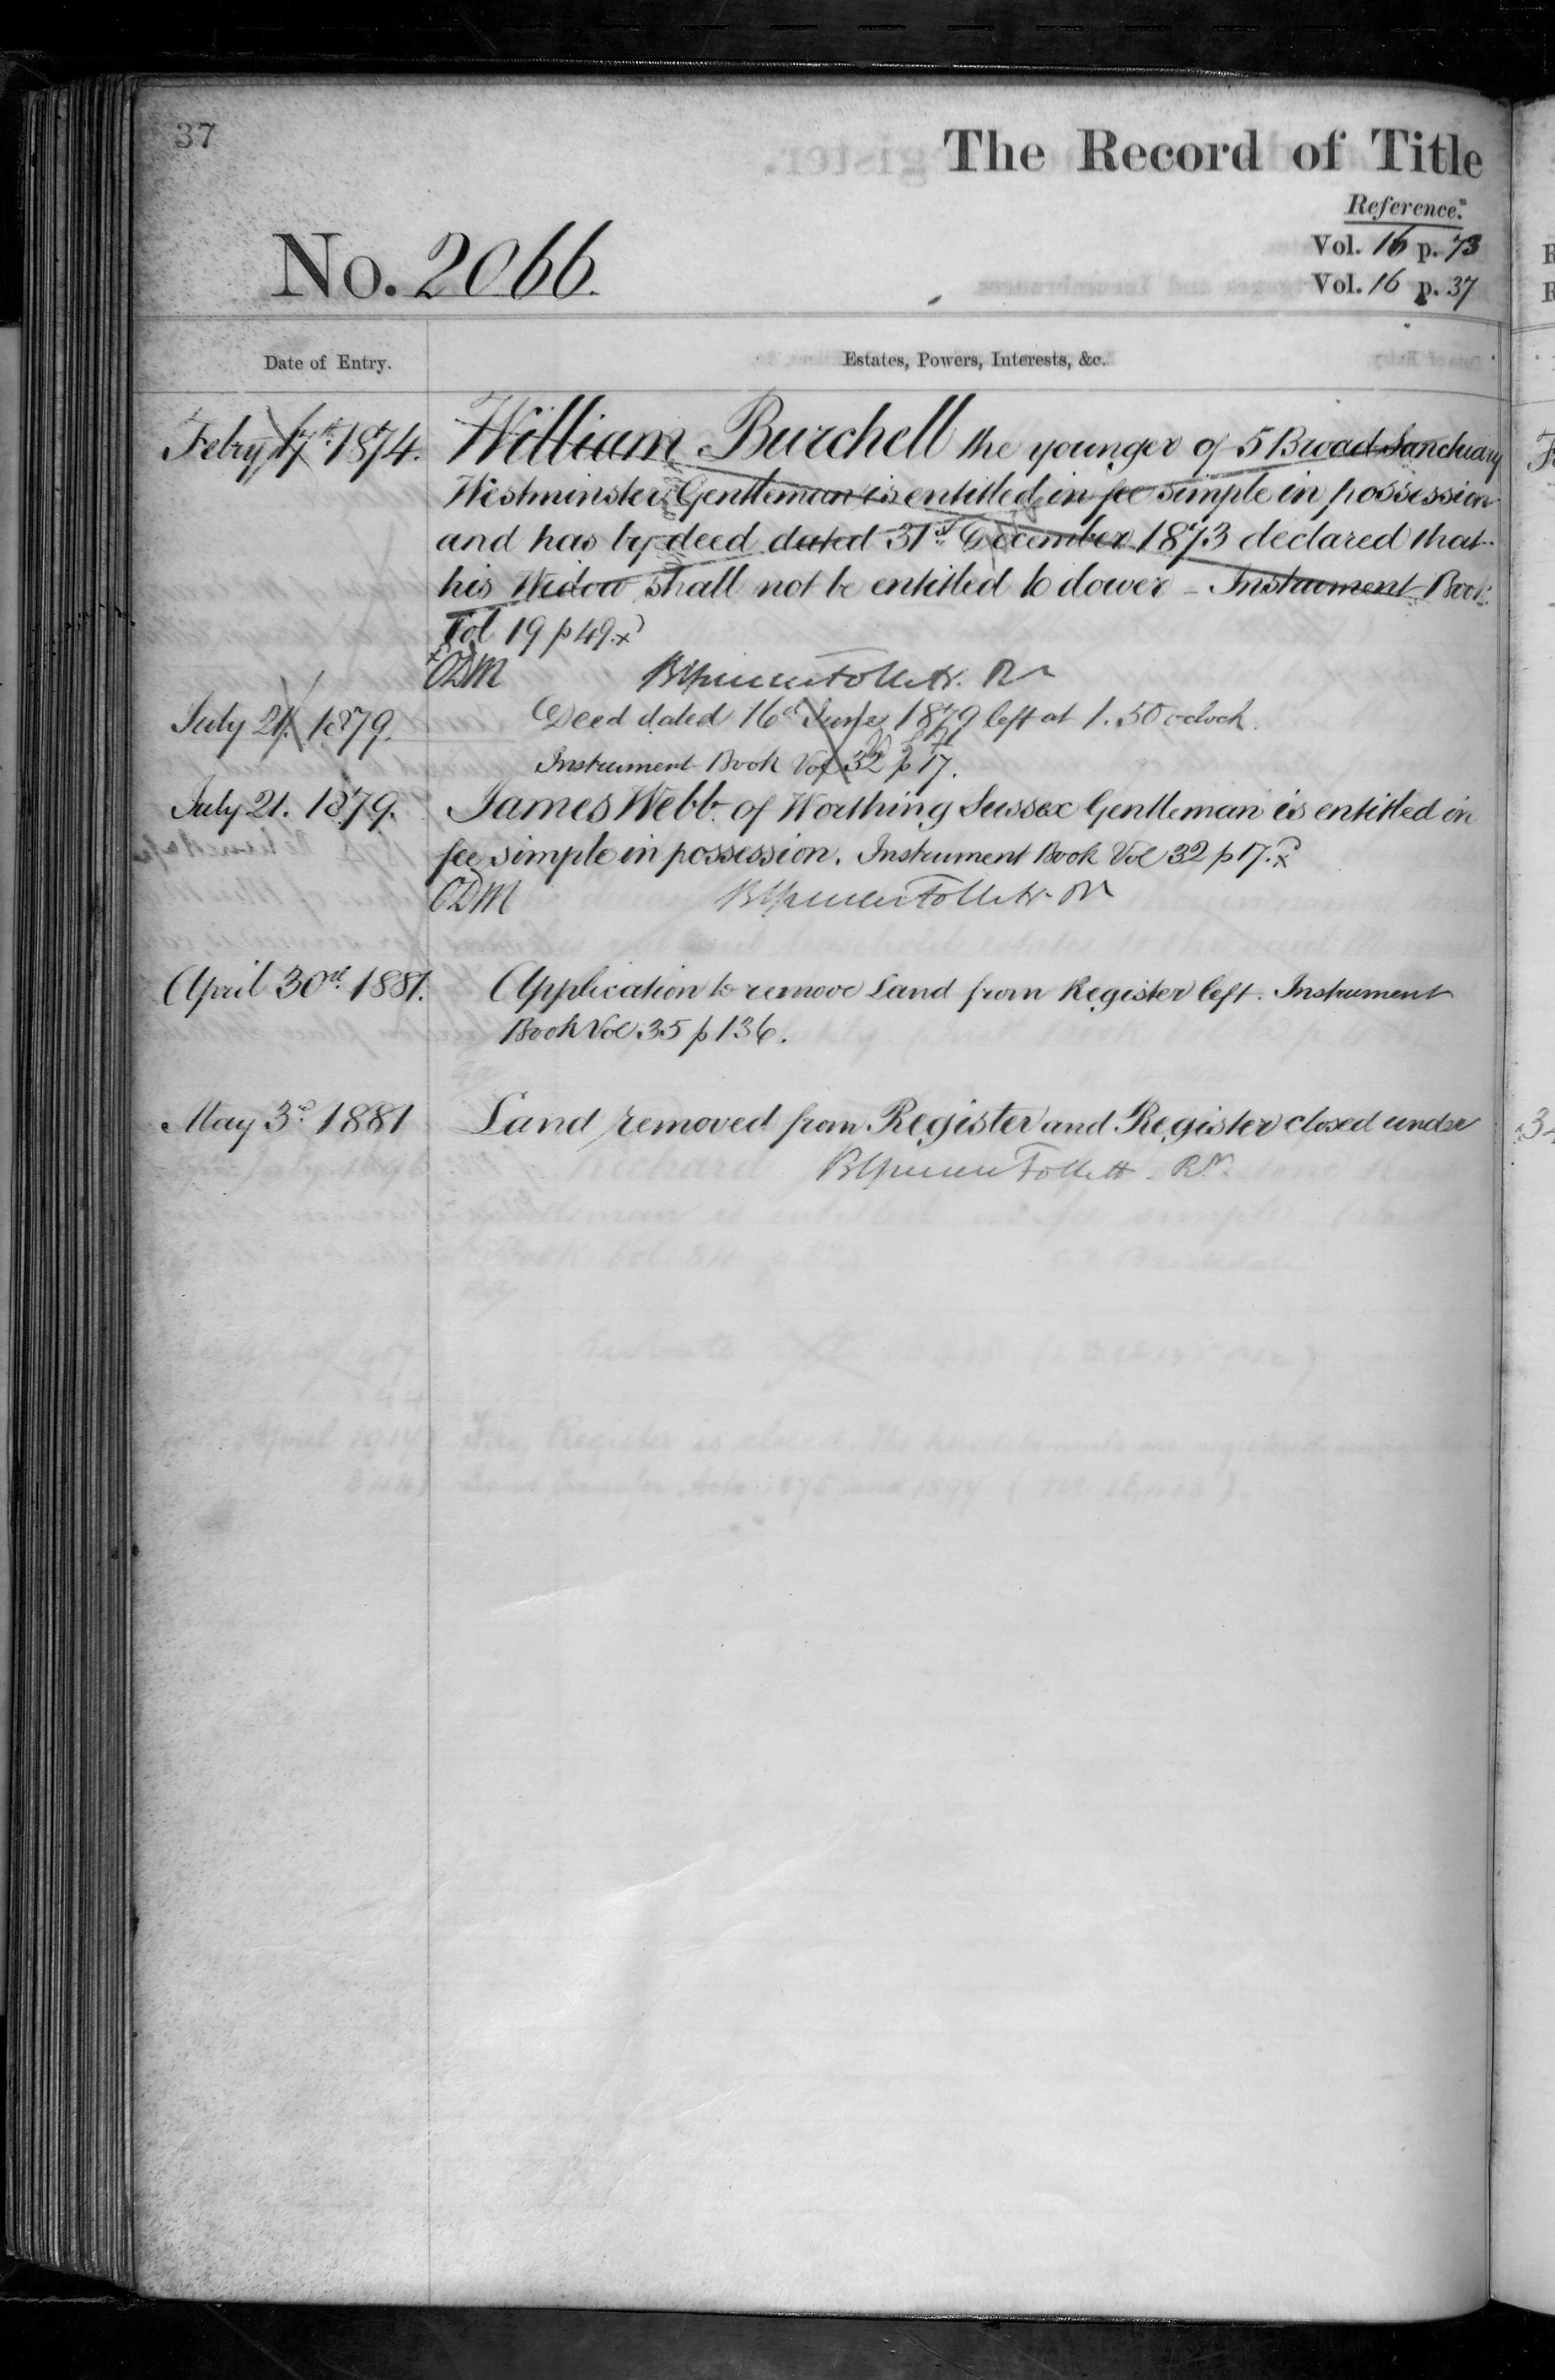 37
The Record of Title
Reference.
Vol. 16 p. 73
No. 2066.
Vol. 16 p. 37
Date of Entry.
Estates, Powers, Interests, &c.
Febry 17th 1874. William Burchell the younger of 5 Broad Sanctuary
Westminster Gentleman is entitled in fee simple in possession
and has by deed dated 31st December 1873 declared that
his Widow shall not be entitled to dower - Instrument Book
Vol 19 p 49.x
Follett. Rr
July 21. 1879. Deed dated 16th June 1879 left at 1.50 o'clock.
Instrument Book Vol 32 p 17.
July 21. 1879. James Webb of Worthing Sussex Gentleman is entitled in
fee simple in possession. Instrument Book Vol 32 p 17.x
Follett Rr
April 30th 1881. Application to remove Land from Register left. Instrument
Book Vol 35 p 136.
May 3rd 1881 Land removed from Register and Register closed under
Follett. Rr.